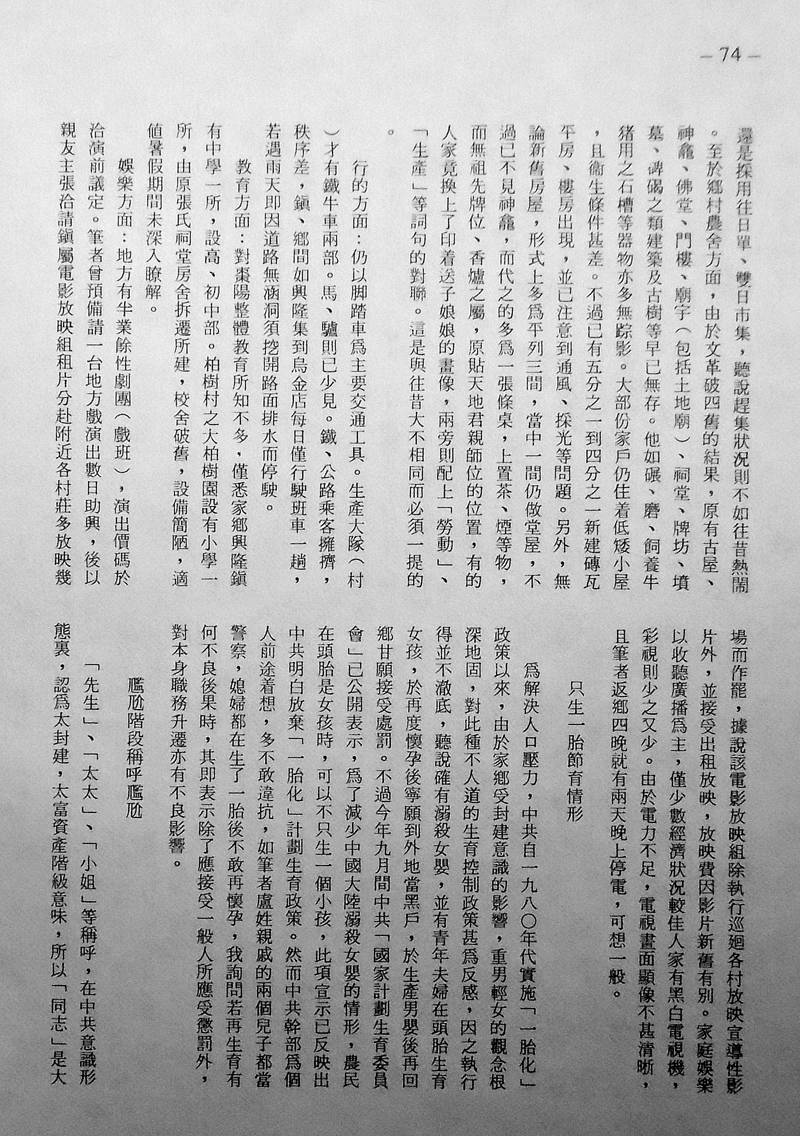 — 74 —
還是採用往日單、雙日市集，聽說趕集狀況則不如往昔熱鬧
。至於鄉村農舍方面，由於文革破四舊的結果，原有古屋、
神龕、佛堂、門樓、廟宇（包括土地廟）、祠堂、牌坊、墳
墓、碑碣之類建築及古樹等早已無存。他如碾、磨、飼養牛
猪用之石槽等器物亦多無踪影。大部份家戶仍住着低矮小屋
，且衞生條件甚差。不過已有五分之一到四分之一新建磚瓦
平房、樓房出現，並已注意到通風、採光等問題。另外，無
論新舊房屋，形式上多為平列三間，當中一間仍做堂屋，不
過已不見神龕，而代之的多為一張條桌，上置茶、煙等物，
而無祖先牌位、香爐之屬，原貼天地君親師位的位置，有的
人家竟換上了印着送子娘娘的畫像，兩旁則配上「勞動」、
「生產」等詞句的對聯。這是與往昔大不相同而必須一提的
。
行的方面：仍以脚踏車為主要交通工具。生產大隊（村
）才有鐵牛車兩部。馬、驢則已少見。鐵、公路乘客擁擠，
秩序差，鎮、鄉間如興隆集到烏金店每日僅行駛班車一趟，
若遇雨天即因道路無涵洞須挖開路面排水而停駛。
教育方面：對棗陽整體教育所知不多，僅悉家鄉興隆鎮
有中學一所，設高、初中部。柏樹村之大柏樹園設有小學一
所，由原張氏祠堂房舍拆遷所建，校舍破舊，設備簡陋，適
值暑假期間未深入瞭解。
娛樂方面：地方有半業餘性劇團（戲班），演出價碼於
治演前議定。筆者曾預備請一台地方戲演出數日助興，後以
親友主張洽請鎮屬電影放映組租片分赴附近各村莊多放映幾
場而作罷，據說該電影放映組除執行巡廻各村放映宣導性影
片外，並接受出租放映，放映費因影片新舊有別。家庭娛樂
以收聽廣播為主，僅少數經濟狀況較佳人家有黑白電視機，
彩視則少之又少。由於電力不足，電視畫面顯像不甚清晰，
且筆者返鄉四晚就有兩天晚上停電，可想一般。
只生一胎節育情形
為解決人口壓力，中共自一九八〇年代實施「一胎化」
政策以來，由於家鄉受封建意識的影響，重男輕女的觀念根
深地固，對此種不人道的生育控制政策甚為反感，因之執行
得並不澈底，聽說確有溺殺女嬰，並有青年夫婦在頭胎生育
女孩，於再度懷孕後寧願到外地當黑戶，於生產男嬰後再回
鄉甘願接受處罰。不過今年九月間中共「國家計劃生育委員
會」已公開表示，為了減少中國大陸溺殺女嬰的情形，農民
在頭胎是女孩時，可以不只生一個小孩，此項宣示已反映出
中共明白放棄「一胎化」計劃生育政策。然而中共幹部為個
人前途着想，多不敢違抗，如筆者盧姓親戚的兩個兒子都當
警察，媳婦都在生了一胎後不敢再懷孕，我詢問若再生育有
何不良後果時，其即表示除了應接受一般人所應受懲罰外，
對本身職務升遷亦有不良影響。
尷尬階段稱呼尷尬
「先生」、「太太」、「小姐」等稱呼，在中共意識形
態裏，認為太封建，太富資產階級意味，所以「同志」是大